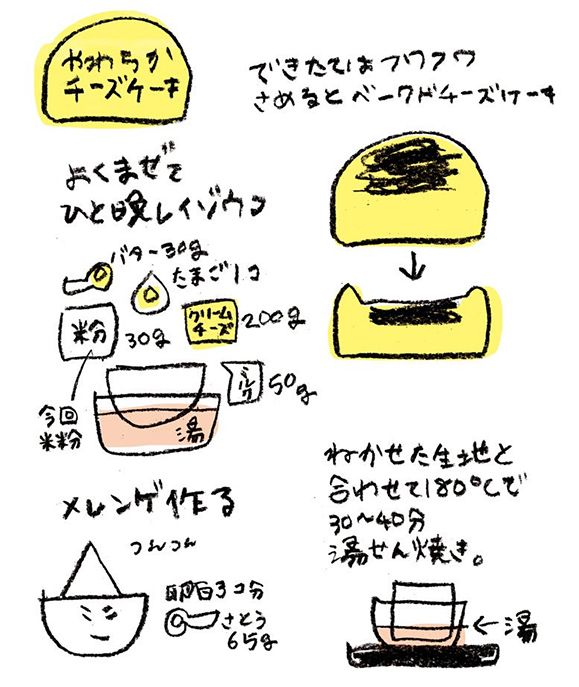 やわらか
チーズケーキ
できたてはフワフワ
さめるとベークドチーズケーキ
よくまぜて
ひと晩レイゾウコ
バター30g
たまご1コ
粉
30g
クリーム
チーズ
200g
ミルク
50g
今回
米粉
湯
メレンゲ作る
つんつん
卵白3コ分
さとう
65g
ねかせた生地と
合わせて180℃で
30〜40分
湯せん焼き。
←湯